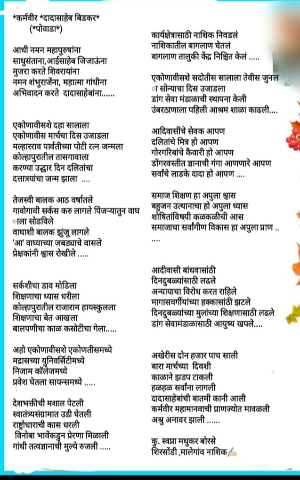 *कर्मवीर *दादासाहेब बिडकर*
(*पोवाडा*)
आधी नमन महापुरुषांना
साधुसंताना,आईसाहेब जिजाऊंना
मुजरा करते शिवरायांना
नमन शंभुराजेंना, महात्मा गांधीना
अभिवादन करते दादासाहेबांना......
एकोणावीसशे दहा सालाला
एकोणावीस मार्चचा दिस उजाडला
मल्हारराव पार्वतीच्या पोटी रत्न जन्मला
कोल्हापुरातील तासगावाला
करण्या उद्धार दिन दलितांचा
दत्तात्रयांचा जन्म झाला ....
तेजस्वी बालक आठ वर्षांतले
गावोगावी सर्कस करु लागले पिंजऱ्यातुन वाघ
ाला सोडविले
वाघाशी बालक झुंजू लागले
'आ' वाघाच्या जबड्याचे वासले
प्रेक्षकांनी श्वास रोखीले .....
सर्कशीचा डाव मोडिला
शिक्षणाचा ध्यास धरीला
कोल्हापुरातील राजाराम हायस्कुलला
शिक्षणाचा बेत आखला
बालपणीचा काळ कसोटीचा गेला.....
अहो एकोणावीसशे एकोणतीसमध्ये
मद्रासच्या युनिवर्सिटीमध्ये
निजाम कॉलेजमध्ये
प्रवेश घेतला सायन्समध्ये .....
देशभक्तीची मशाल पेटली
स्वातंत्र्यसंग्रामात उडी घेतली
राष्ट्रोधाराची कास धरली
विनोबा भावेंकडुन प्रेरणा मिळाली
गांधी तत्वज्ञानाची मुल्ये रुजली .....
कार्यक्षेत्रासाठी नाशिक निवडलं
नाशिकातील बागलाण घेतलं
बागलाण तालुकी केंद्र निश्चित केलं .....
एकोणावीसशे सदोतीस सालाला तेवीस जुनल
ा सोन्याचा दिस उजाडला
डांग सेवा मंडळाची स्थापना केली
उंबरठाणाला पहिली आश्रम शाळा काढली....
आदिवासींचे सेवक आपण
दलितांचे मित्र हो आपण
गोरगरिबांचे कैवारी हो आपण
डोंगरवस्तीत ज्ञानाची गंगा आणणारे आपण
सर्वांचे लाडके दादा हो आपण ....
समाज शिक्षण हा अपुला श्वास
बहुजन उत्थानाचा हो अपुला ध्यास
शोषितांविषयी कळकळीची आस
समाजाचा सर्वांगीण विकास हा अपुला प्राण ..
....
आदीवासी बांधवांसाठी
दिनदुबळ्यांसाठी लढले
अन्यायाचा विरोध करत राहिले
मागासवर्गीयांच्या हक्कासाठी झटले
दिनदुबळ्यांच्या मुलांच्या शिक्षणासाठी लढले
डांग सेवामंडाळासाठी आयुष्य खपले....
अखेरीस दोन हजार पाच साली
बारा मार्चच्या दिवशी
काळाने झडप टाकली
हळहळ सर्वांना लागली
दादासाहेबांची बातमी कानी आली
कर्मवीर महामानवाची प्राणज्योत मावळली
अश्रु अनावर झाली ......
कु. स्वप्ना मधुकर बोरसे
शिरसोंडी ,मालेगांव नाशिक✍